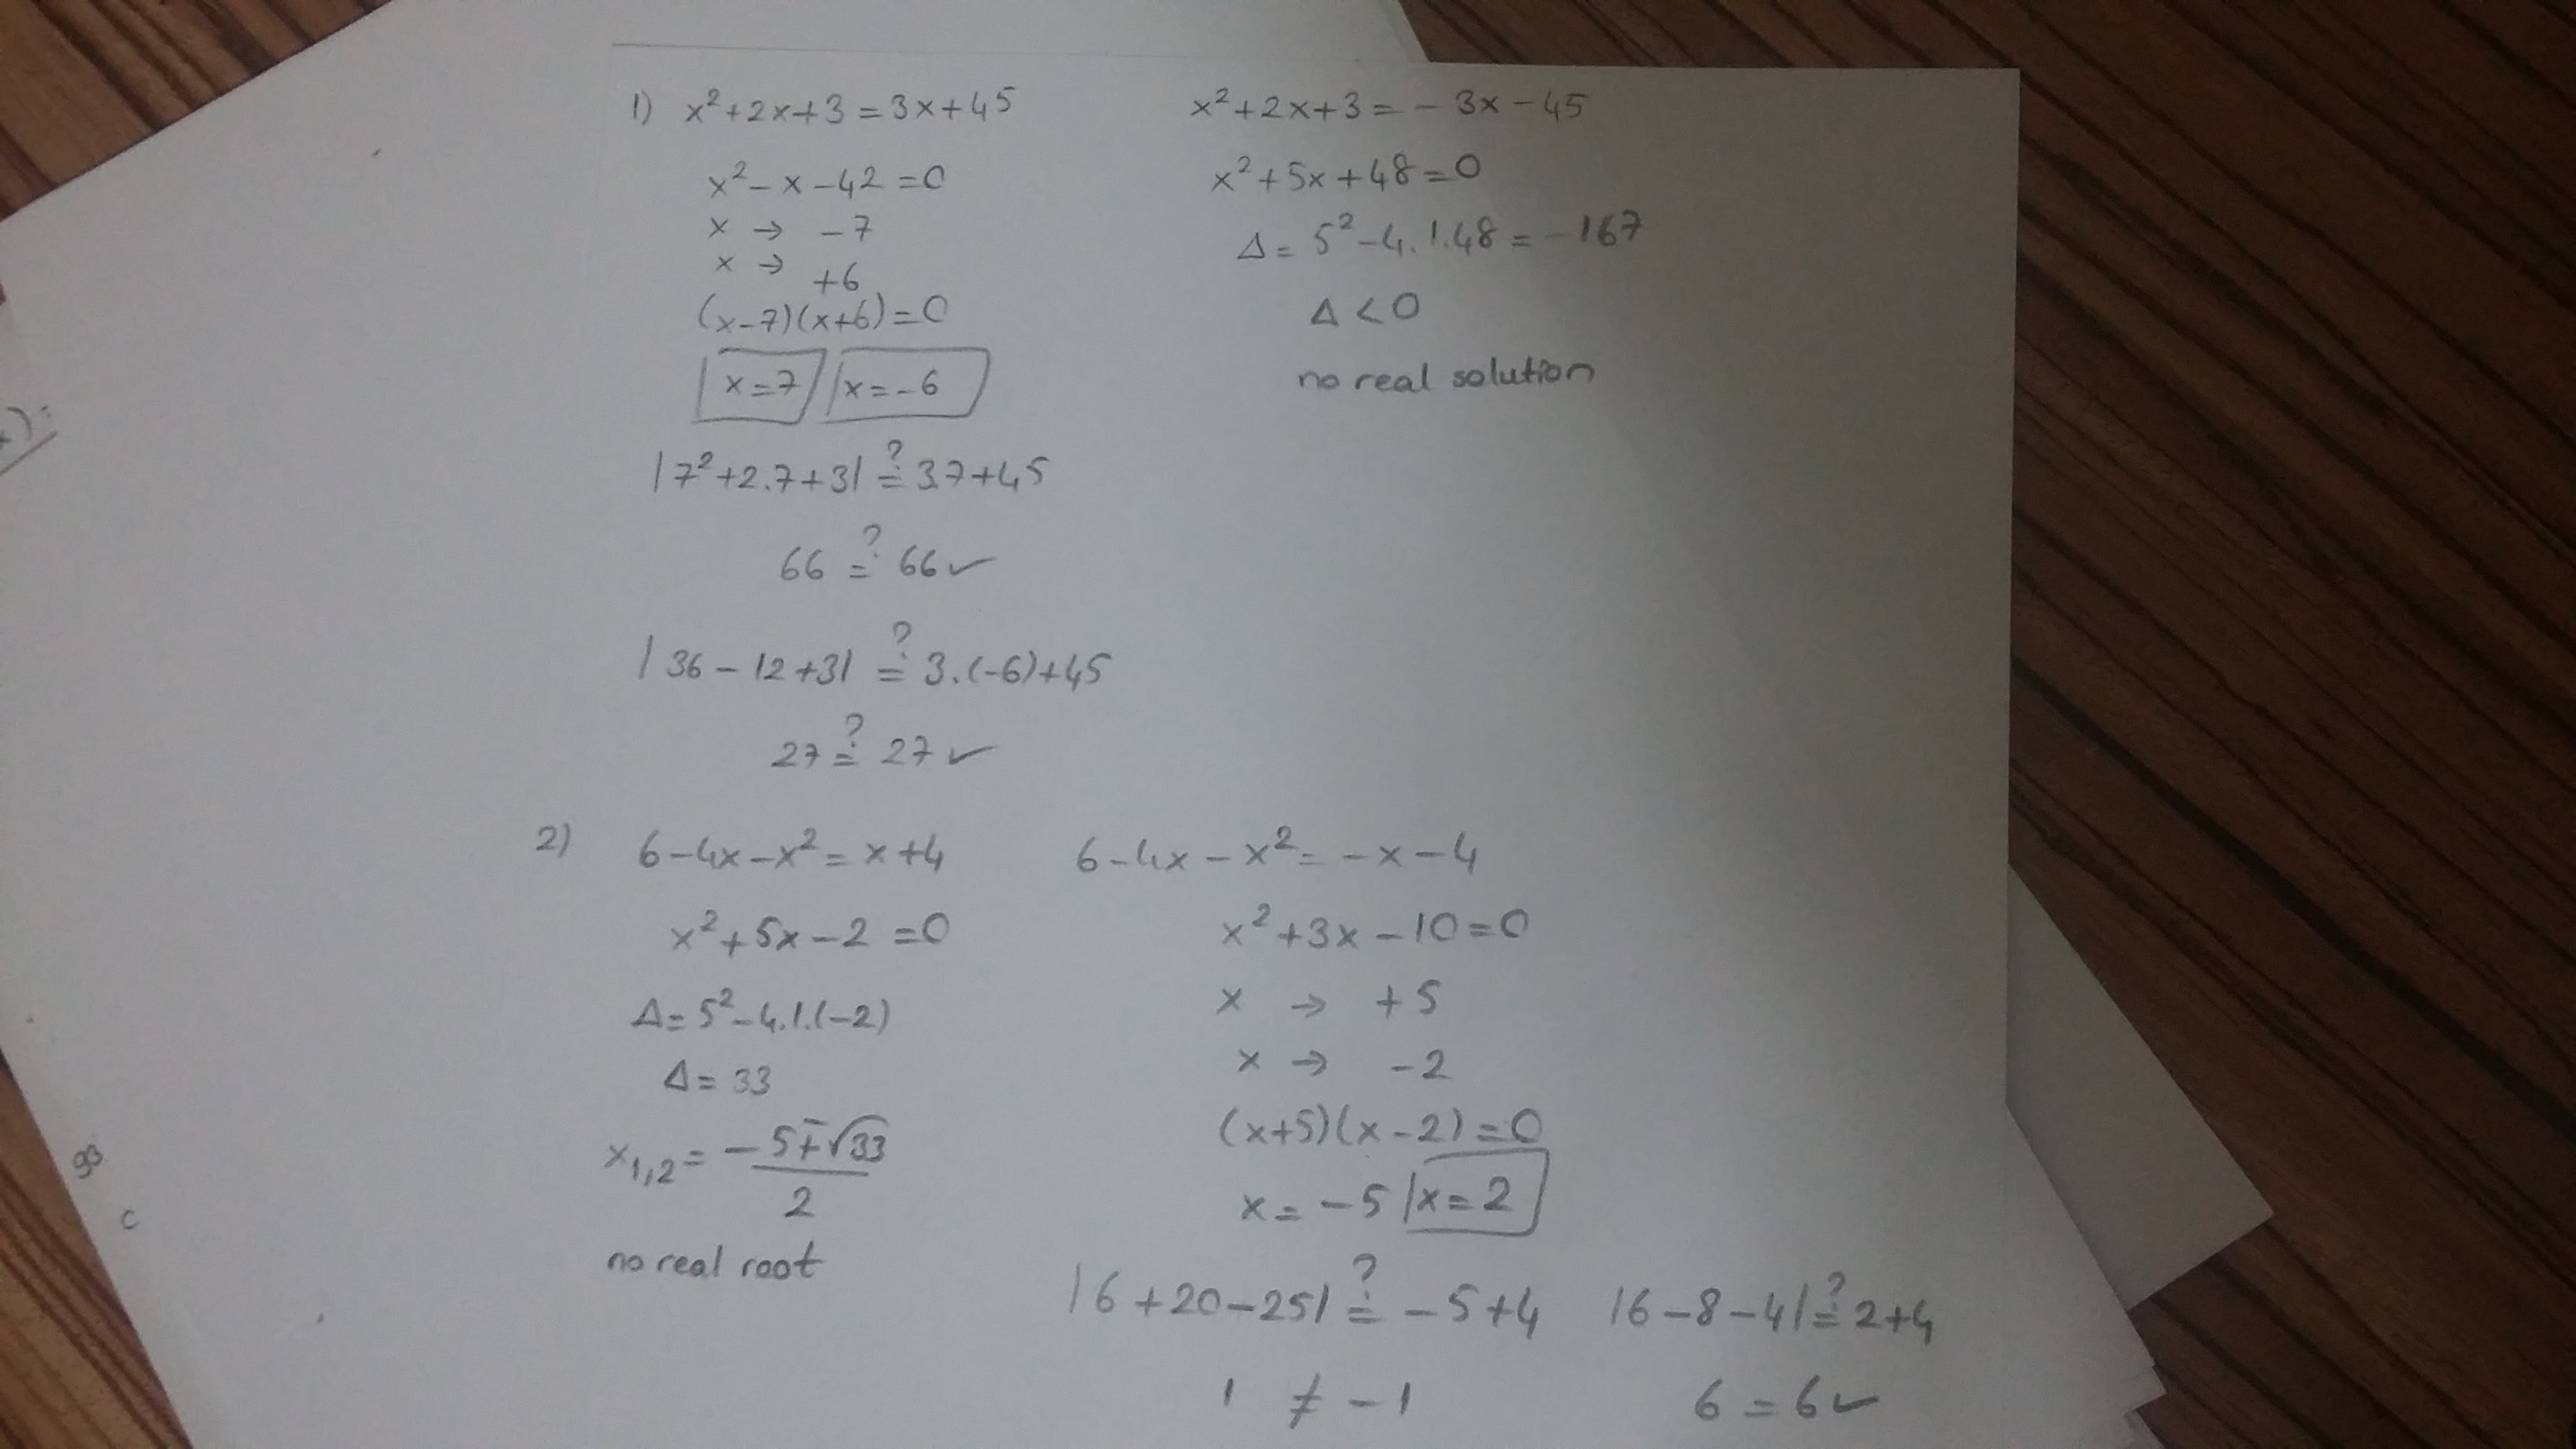 1) x²+2x+3=3x+45
x²-x-42=0
x → -7
x → +6
(x-7)(x+6)=0
x=7 x=-6
|7²+2.7+3| ≟ 3.7+45
66 ≟ 66 ✓
|36-12+3| ≟ 3.(-6)+45
27 ≟ 27 ✓
x²+2x+3=-3x-45
x²+5x+48=0
Δ=5²-4.1.48=-167
Δ<0
no real solution
2) 6-4x-x²=x+4
x²+5x-2=0
Δ=5²-4.1.(-2)
Δ=33
x1,2=(-5∓√33)/2
no real root
6-4x-x²=-x-4
x²+3x-10=0
x → +5
x → -2
(x+5)(x-2)=0
x=-5 x=2
|6+20-25| ≟ -5+4
1 ≠ -1
|6-8-4| ≟ 2+4
6=6 ✓
):
93
c